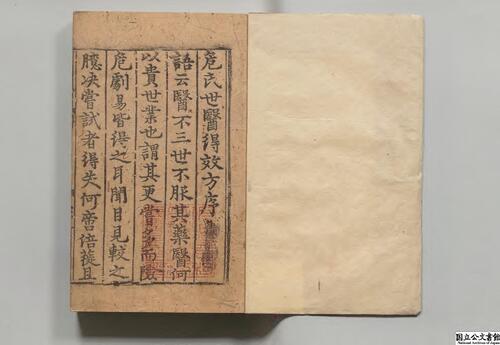 危氏世醫得效方序
語云醫不三世不服其藥醫何
以貴世業也謂其更嘗多而險
危劇易皆得之耳聞目見較之
臆决嘗試者得失何啻倍蓰且
国立公文書館
National Archives of Japan